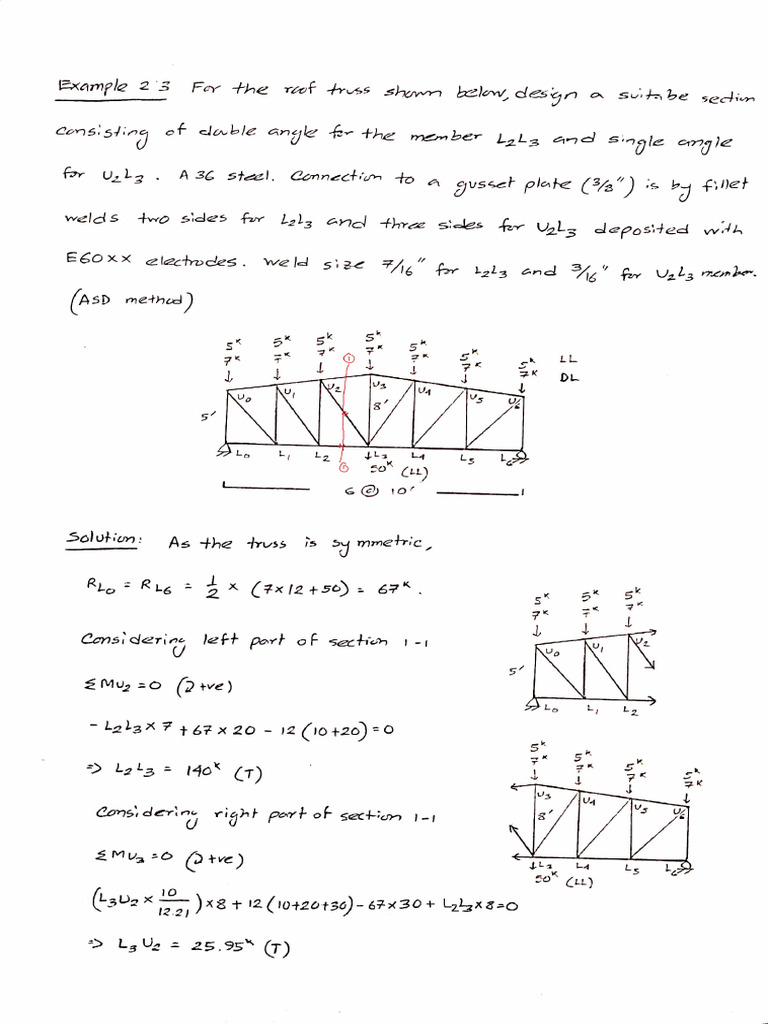 Example 2.3 For the roof truss shown below, design a suitabe section
consisting of double angle for the member L2L3 and single angle
for U2L3. A36 steel. Connection to a gusset plate (3/8") is by fillet
welds two sides for L2L3 and three sides for U2L3 deposited with
E60xx electrodes. Weld size 7/16" for L2L3 and 3/16" for U2L3 member.
(ASD method)
5K 5K 5K 5K 5K 5K 5K LL
7K 7K 7K 7K 7K 7K 7K DL
1
U0 U1 U2 U3 U4 U5 U6
5' 8'
L0 L1 L2 L3 L4 L5 L6
1 50K (LL)
6 @ 10'
Solution: As the truss is symmetric,
RL0 = RL6 = 1/2 × (7×12+50) = 67K.
Considering left part of section 1-1
ΣMU2=0 (+ve)
-L2L3×7+67×20-12(10+20)=0
=> L2L3 = 140K (T)
Considering right part of section 1-1
ΣMU3=0 (+ve)
(L3U2×10/12.21)×8+12(10+20+30)-67×30+L2L3×8=0
=> L3U2 = 25.95K (T)
5K 5K 5K
7K 7K 7K
U0 U1 U2
5'
L0 L1 L2
5K 5K 5K 5K
7K 7K 7K 7K
U3 U4 U5 U6
8'
L3 L4 L5 L6
50K (LL)